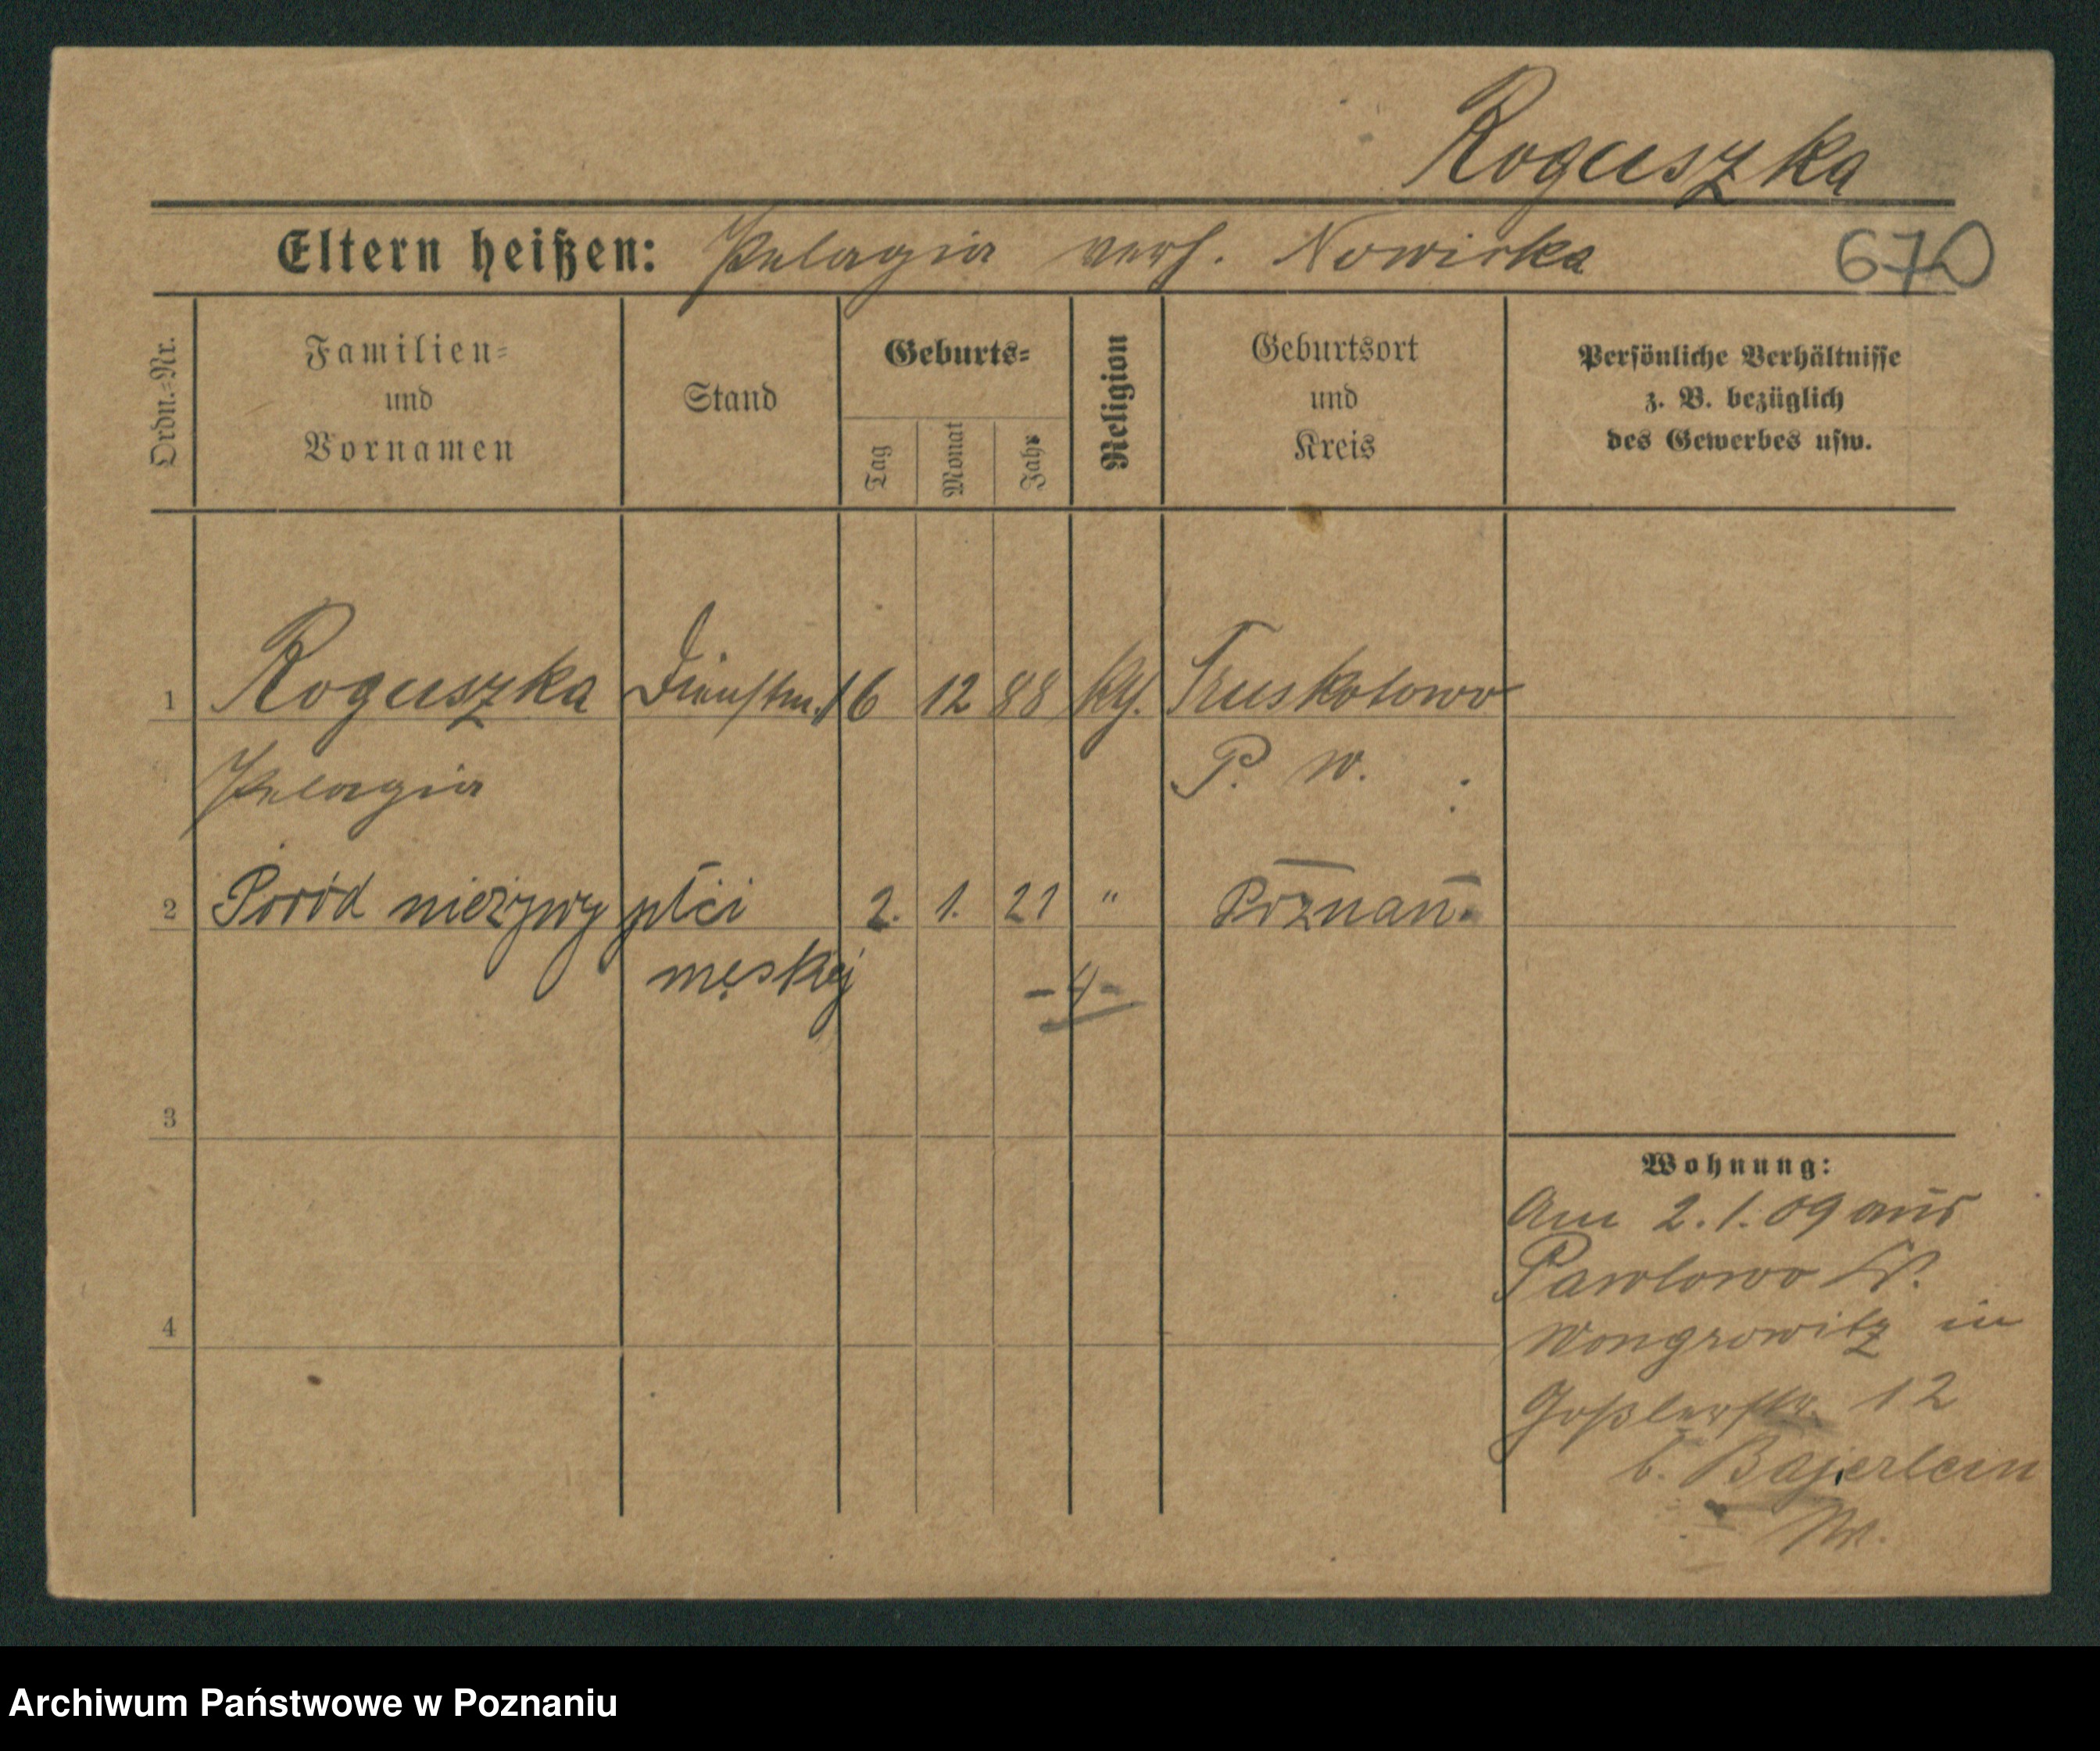 Roguszka
Eltern heißen: Pelagia verh. Nowicka
670
Ordn.=Nr.
Familien=
und
Vornamen
Stand
Geburts=
Tag
Monat
Jahr
Religion
Geburtsort
und
Kreis
Persönliche Verhältnisse
z. B. bezüglich
des Gewerbes usw.
1 Roguszka Dienstm. 16 12 88 kg. Truskolowo
Pelagia P. W.
2 Poród nieżywy płci 2. 1. 21 " Poznań.
męskiej
-4-
3
Wohnung:
Am 2.1.09 aus
Pawlowo Kr.
4
Wongrowitz in
Goßlerstr. 12
b. Bajerlein